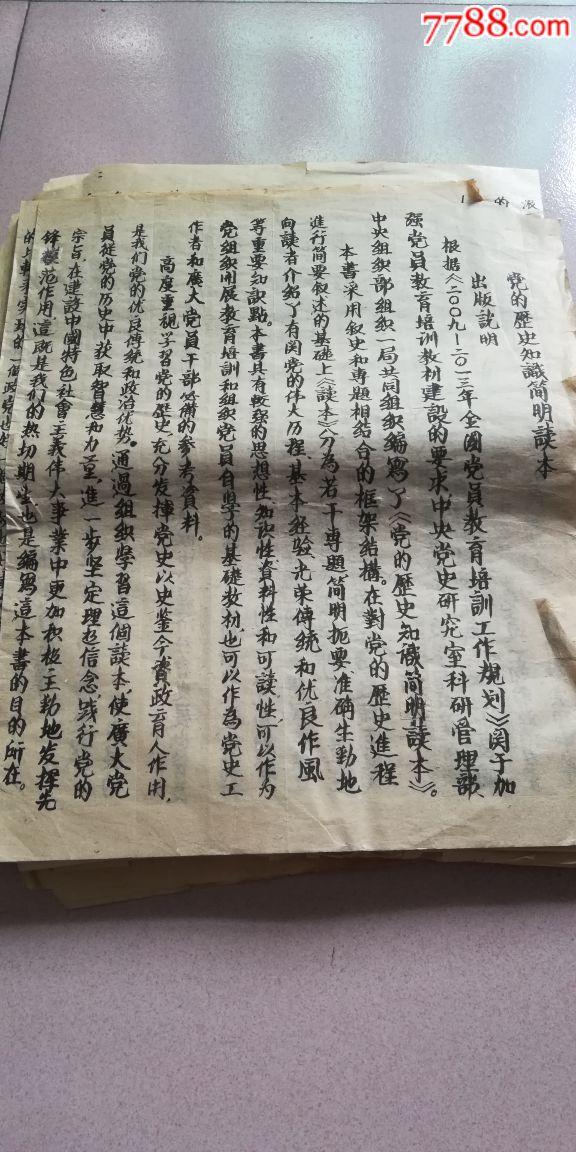 7788.com
党的歷史知識简明讀本
出版説明
根据《二00九—二0一三年全國党員教育培訓工作規划》関于加
强党員教育培訓教材建設的要求,中央党史研究室科研管理部、
中央組織部組織一局共同組織編寫了《党的歷史知識简明讀本》。
本書采用叙史和專題相結合的框架結構。在對党的歷史進程
進行简要叙述的基础上,《讀本》分為若干專題简明扼要、准确生動地
向讀者介紹了有関党的伟大历程、基本經驗、光荣傳統和优良作風
等重要知識點。本書具有較强的思想性、知识性、資料性和可讀性,可以作為
党組织開展教育培訓和組织党員自學的基礎教材,也可以作為党史工
作者和廣大党員干部需的参考資料。
高度重視學習党的歷史,充分发揮党史以史鉴今、資政育人作用,
是我們党的优良傳統和政治优势。通過組织學習這個讀本,使廣大党
員從党的历史中获取智慧和力量,進一步坚定理想信念,践行党的
宗旨,在建設中國特色社會主義伟大事業中更加积极、主動地发揮先
鋒模范作用,這既是我們的热切期望,也是編寫這本書的目的所在。